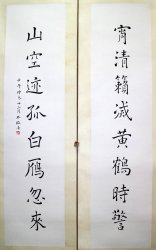 宵清籟滅黃鶴時警
山空迹孤白鴈忽來